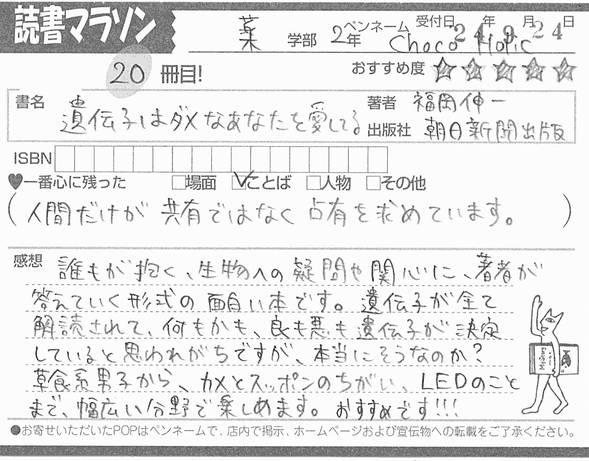 読書マラソン
薬 学部 2年 ペンネーム Choco Holic 受付日 24年9月24日
20 冊目! おすすめ度 ☆☆☆☆☆
書名 遺伝子はダメなあなたを愛してる 著者 福岡伸一
出版社 朝日新聞出版
ISBN
♥一番心に残った □場面 ☑ことば □人物 □その他
(人間だけが共有ではなく占有を求めています。)
感想 誰もが抱く、生物への疑問や関心に、著者が
答えていく形式の面白い本です。遺伝子が全て
解読されて、何もかも、良も悪も遺伝子が決定
していると思われがちですが、本当にそうなのか?
草食系男子から、カメとスッポンのちがい、LEDのこと
まで、幅広い分野で楽しめます。おすすめです!!!
●お寄せいただいたPOPはペンネームで、店内で掲示、ホームページおよび宣伝物への転載をご了承ください。